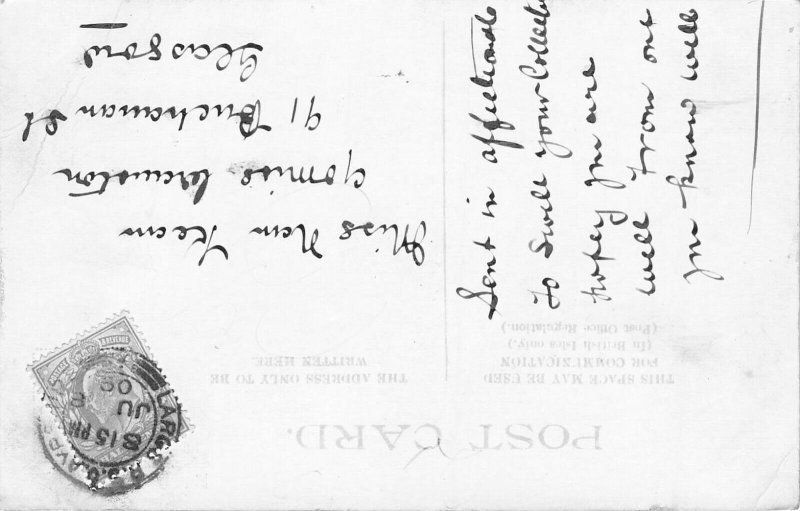 POST CARD.
THIS SPACE MAY BE USED
FOR COMMUNICATION
(In British Isles only.)
(Post Office Regulation.)
THE ADDRESS ONLY TO BE
WRITTEN HERE.
Sent in affectionate
to Swell your Collect
hopey you are
well From one
you know well
Miss Nan Kean
c/o Miss
91 Buchanan St
Glasgow
LARGS
8 15 PM
JU
09
POSTAGE & REVENUE